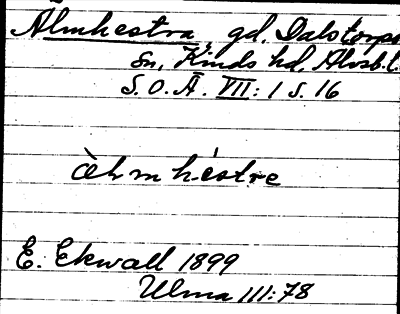 Älmhestra, gd. Dalstorps
sn, Kinds hd, Älvsb. l.
S. O. Ä. VII: 1 s. 16
èhm héstre
E. Ekwall 1899
Ulma III:78